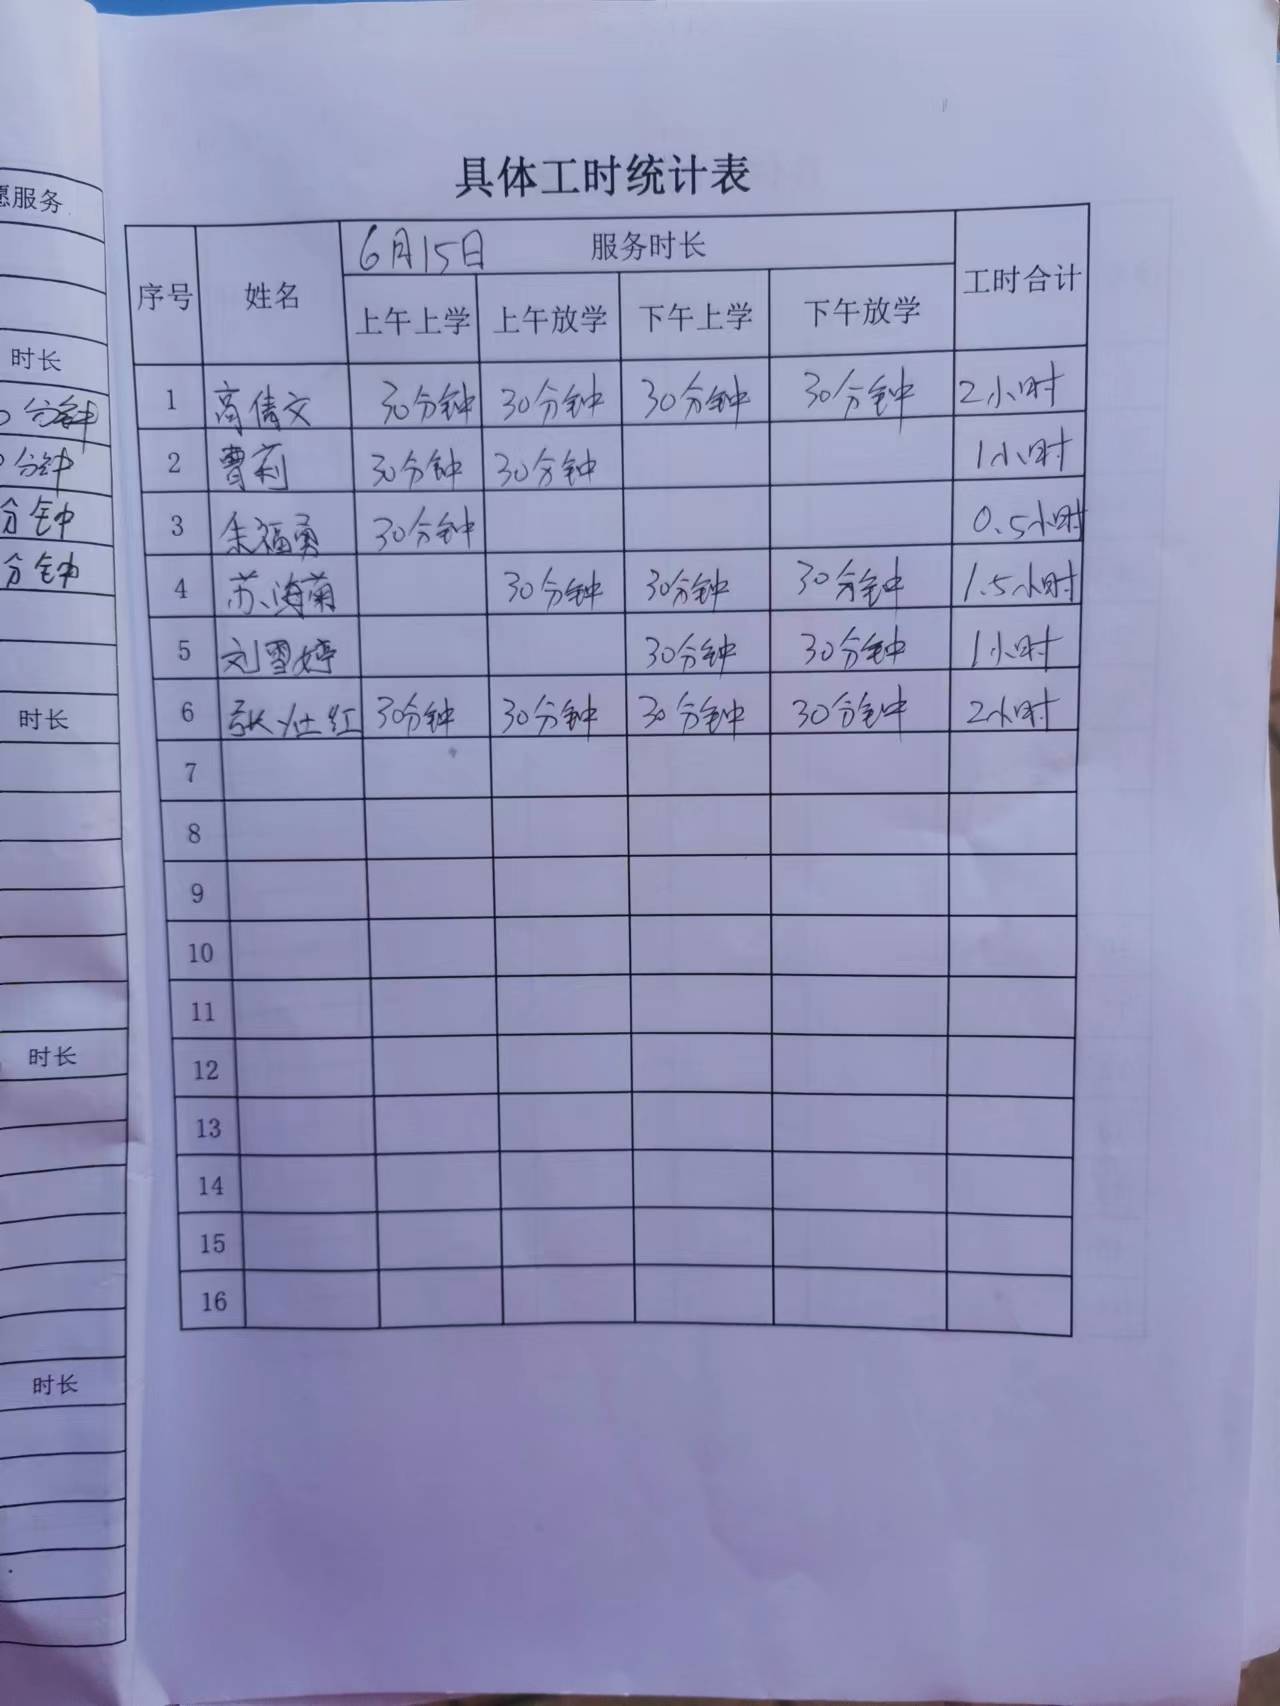 愿服务
时长
分钟
分钟
分钟
分钟
时长
时长
时长
具体工时统计表
序号 姓名 6月15日 服务时长 工时合计
上午上学 上午放学 下午上学 下午放学
1 高倩文 30分钟 30分钟 30分钟 30分钟 2小时
2 曹莉 30分钟 30分钟 1小时
3 福勇 30分钟 0.5小时
4 苏海菊 30分钟 30分钟 30分钟 1.5小时
5 刘雪婷 30分钟 30分钟 1小时
6 张仕红 30分钟 30分钟 30分钟 30分钟 2小时
7
8
9
10
11
12
13
14
15
16